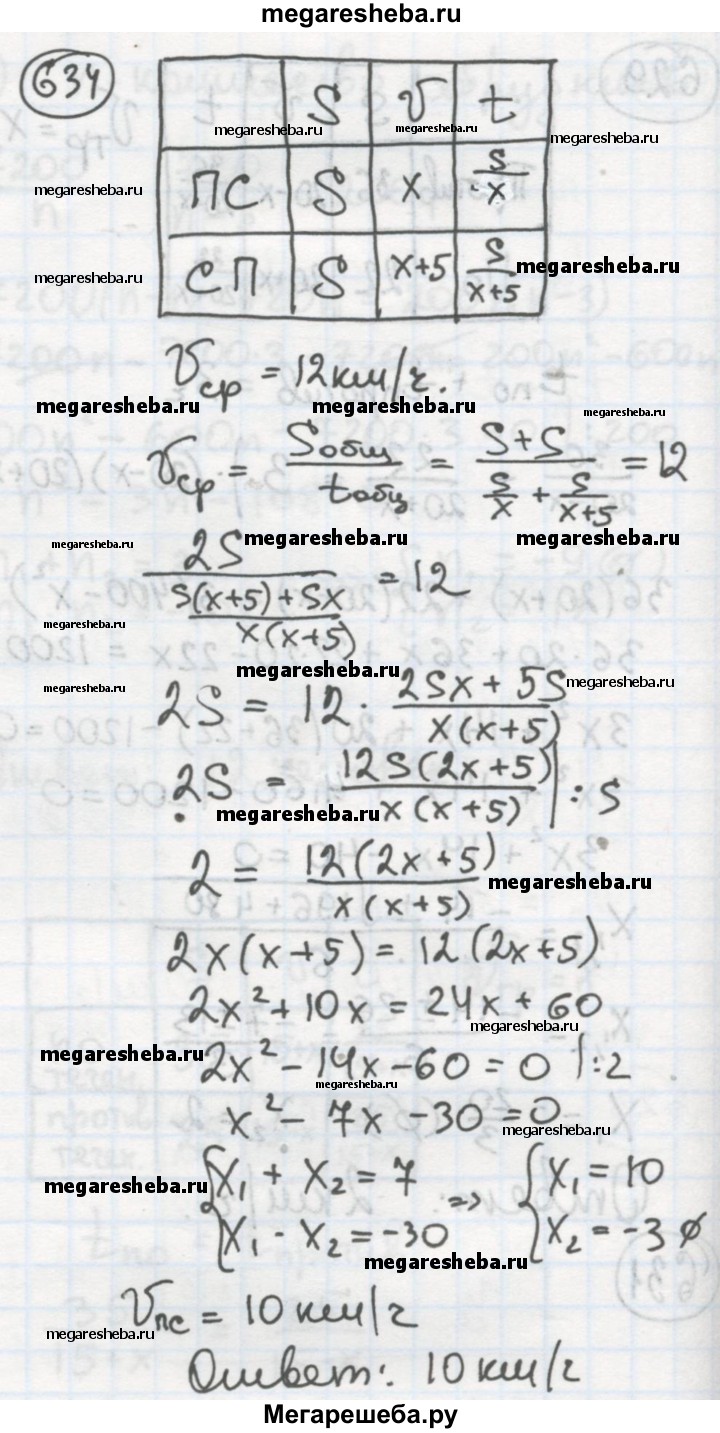 megaresheba.ru
634
S V t
megaresheba.ru megaresheba.ru megaresheba.ru
ПС S x S/x
megaresheba.ru
СП S x+5 S/(x+5)
megaresheba.ru megaresheba.ru
Vср = 12 км/ч.
megaresheba.ru megaresheba.ru megaresheba.ru
Vср = Sобщ/tобщ = (S+S)/(S/x + S/(x+5)) = 12
megaresheba.ru megaresheba.ru megaresheba.ru
2S/((S(x+5)+Sx)/(x(x+5))) = 12
megaresheba.ru
megaresheba.ru
megaresheba.ru megaresheba.ru
2S = 12 · (2Sx + 5S)/(x(x+5))
2S = 12S(2x+5)/(x(x+5)) | : S
megaresheba.ru
2 = 12(2x+5)/(x(x+5))
megaresheba.ru
2x(x+5) = 12(2x+5)
2x² + 10x = 24x + 60
megaresheba.ru
megaresheba.ru
2x² - 14x - 60 = 0 | :2
megaresheba.ru
x² - 7x - 30 = 0
megaresheba.ru
{ x₁ + x₂ = 7 => { x₁ = 10
megaresheba.ru
x₁ · x₂ = -30 x₂ = -3 ∅
megaresheba.ru
Vпс = 10 км/ч
megaresheba.ru
Ответ: 10 км/ч
Мегарешеба.ру